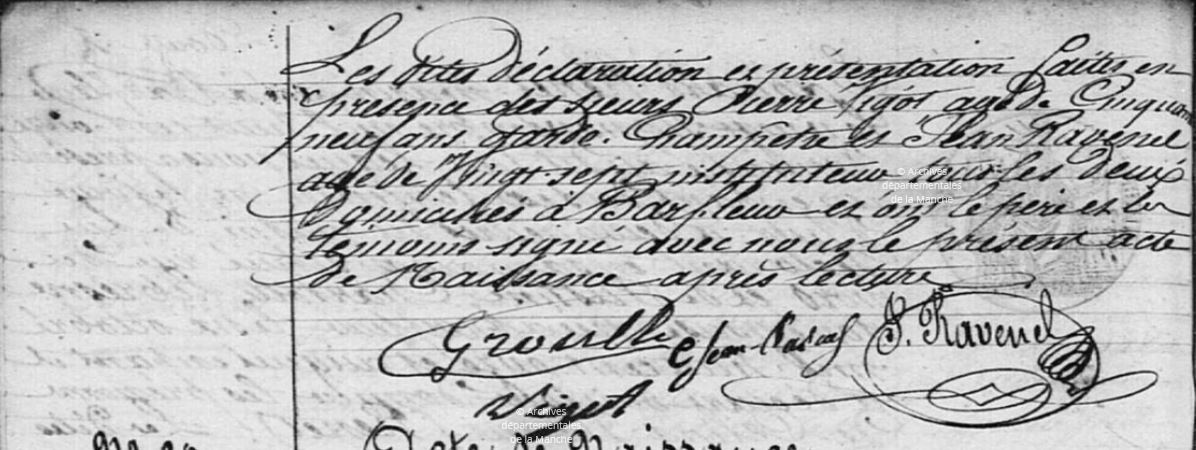 Les dites déclaration et présentation faites en
présence des sieurs Pierre Vigot agé de Cinquante
neuf ans garde-Champêtre et Jean Ravenel
agé de Vingt-sept instituteur tous les deux
domiciliés à Barfleur et ont le père et les
témoins signé avec nous le présent acte
de Naissance après lecture
Jean-Pascal J. Ravenel
Vigot
© Archives
départementales
de la Manche
© Archives
départementales
de la Manche
Acte de Naissance